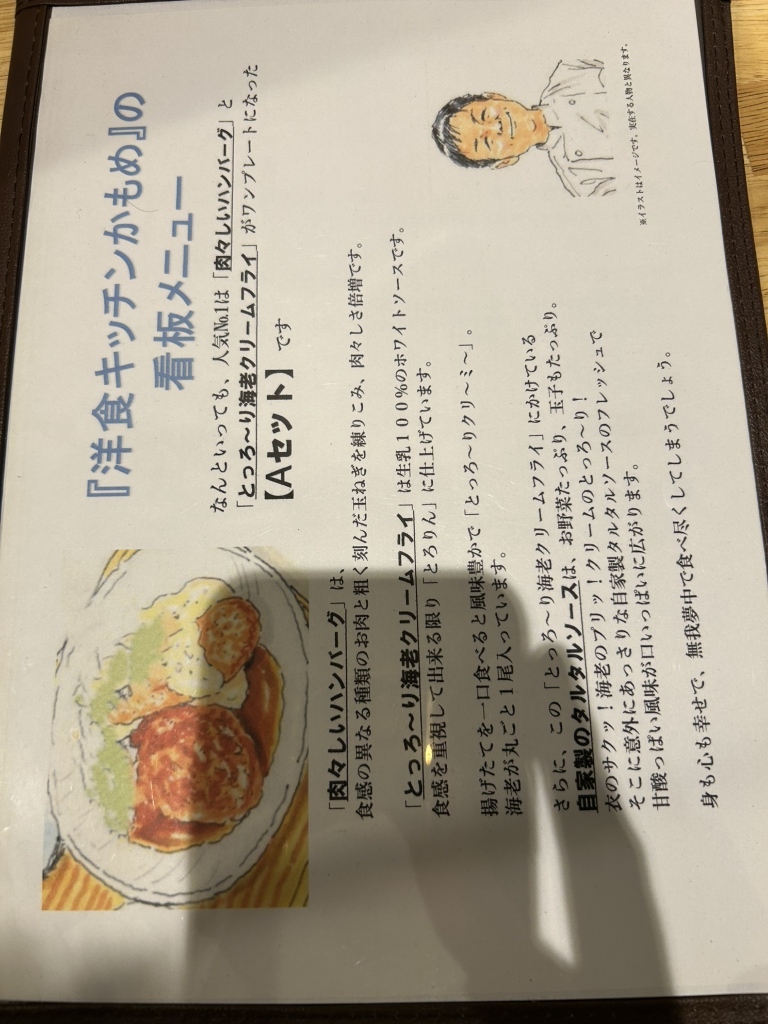 『洋食キッチンかもめ』の
看板メニュー
なんといっても、人気№1は「肉々しいハンバーグ」と
「とっろ〜り海老クリームフライ」がワンプレートになった
【Aセット】です
「肉々しいハンバーグ」は、
食感の異なる種類のお肉と粗く刻んだ玉ねぎを練りこみ、肉々しさ倍増です。
「とっろ〜り海老クリームフライ」は生乳１００％のホワイトソースです。
食感を重視して出来る限り「とろりん」に仕上げています。
揚げたてを一口食べると風味豊かで「とっろ〜りクリ〜ミ〜」。
海老が丸ごと１尾入っています。
さらに、この「とっろ〜り海老クリームフライ」にかけている
自家製のタルタルソースは、お野菜たっぷり、玉子もたっぷり。
衣のサクッ！海老のプリッ！クリームのとっろ〜り！
そこに意外にあっさりな自家製タルタルソースのフレッシュで
甘酸っぱい風味が口いっぱいに広がります。
身も心も幸せで、無我夢中で食べ尽くしてしまうでしょう。
※イラストはイメージです。実在する人物と異なります。